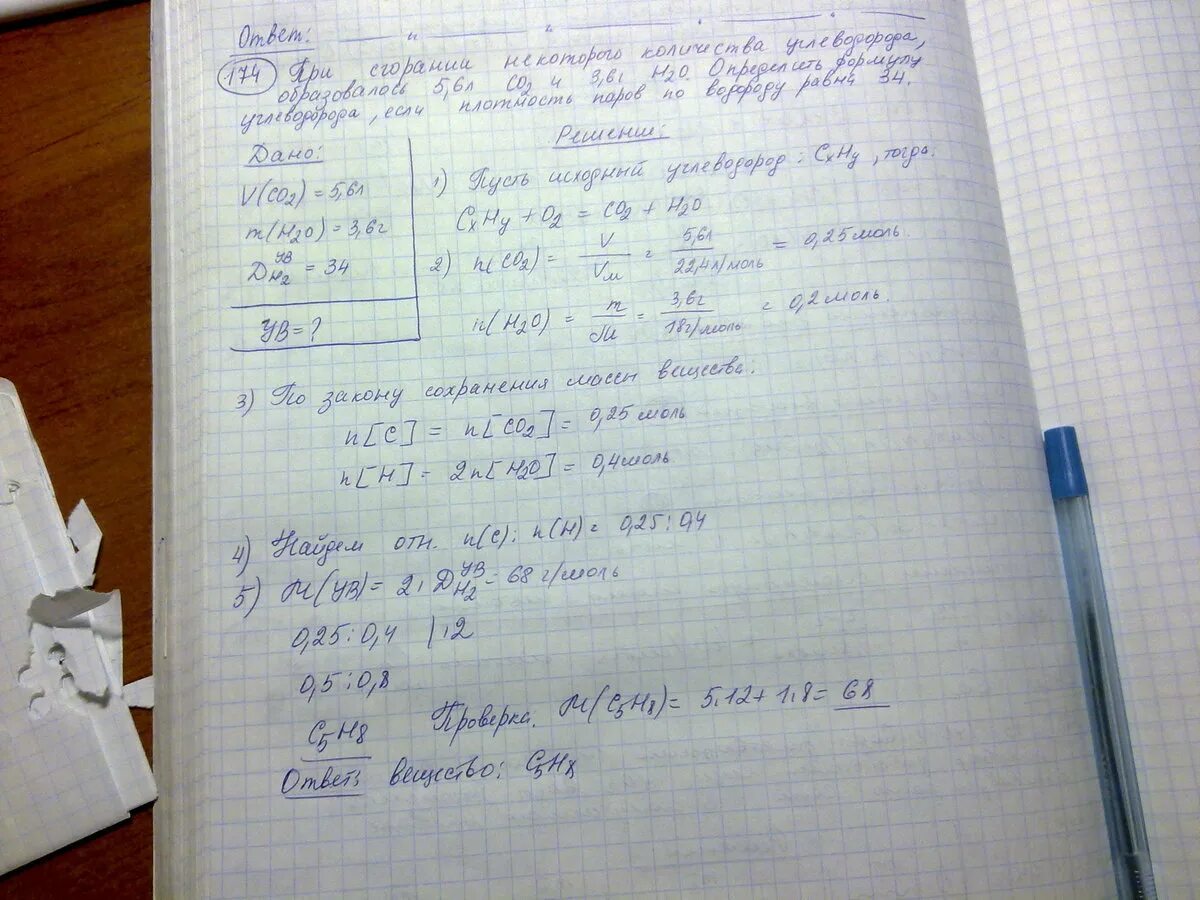 Ответ: " " . .
174 При сгорании некоторого количества углеводорода,
образовалось 5,6л CO2 и 3,6г H2O. Определить формулу
углеводорода, если плотность паров по водороду равна 34.
Дано:
V(CO2) = 5,6л
m(H2O) = 3,6г
D УВ H2 = 34
УВ = ?
Решение:
1) Пусть исходный углеводород: CxHy, тогда.
CxHy + O2 = CO2 + H2O
2) n(CO2) = V/Vм = 5,6л/22,4л/моль = 0,25 моль.
n(H2O) = m/M = 3,6г/18г/моль = 0,2 моль.
3) По закону сохранения массы вещества:
n[C] = n[CO2] = 0,25 моль
n[H] = 2n[H2O] = 0,4моль
4) Найдем отн. n(C) : n(H) = 0,25 : 0,4
5) M(УВ) = 2 · D УВ H2 = 68 г/моль
0,25 : 0,4 | · 2
0,5 : 0,8
C5H8 Проверка. M(C5H8) = 5·12 + 1·8 = 68
Ответ: вещество: C5H8